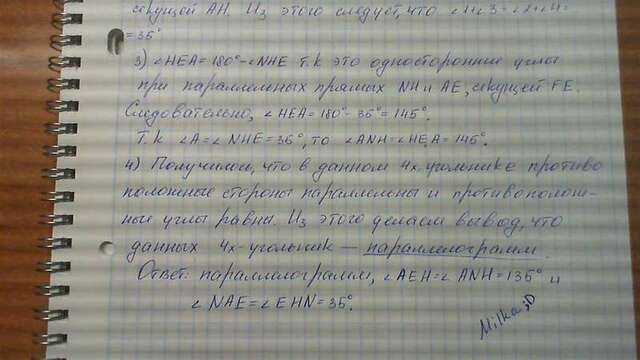 секущей АН. Из этого следует, что
= 35°
3) ∠HEA = 180° - ∠NHE т.к это односторонние углы
при параллельных прямых NH и AE, секущей FE.
Следовательно, ∠HEA = 180° - 35° = 145°.
Т.к ∠A = ∠NHE = 35°, то ∠ANH = ∠HEA = 145°.
4) Получилось, что в данном 4х-угольнике противо
положные стороны параллельны и противополож-
ные углы равны. Из этого делаем вывод, что
данных 4х-угольник — параллелограмм.
Ответ: параллелограмм, ∠AEH = ∠ANH = 135° и
∠NAE = ∠EHN = 35°.
Milka ;D